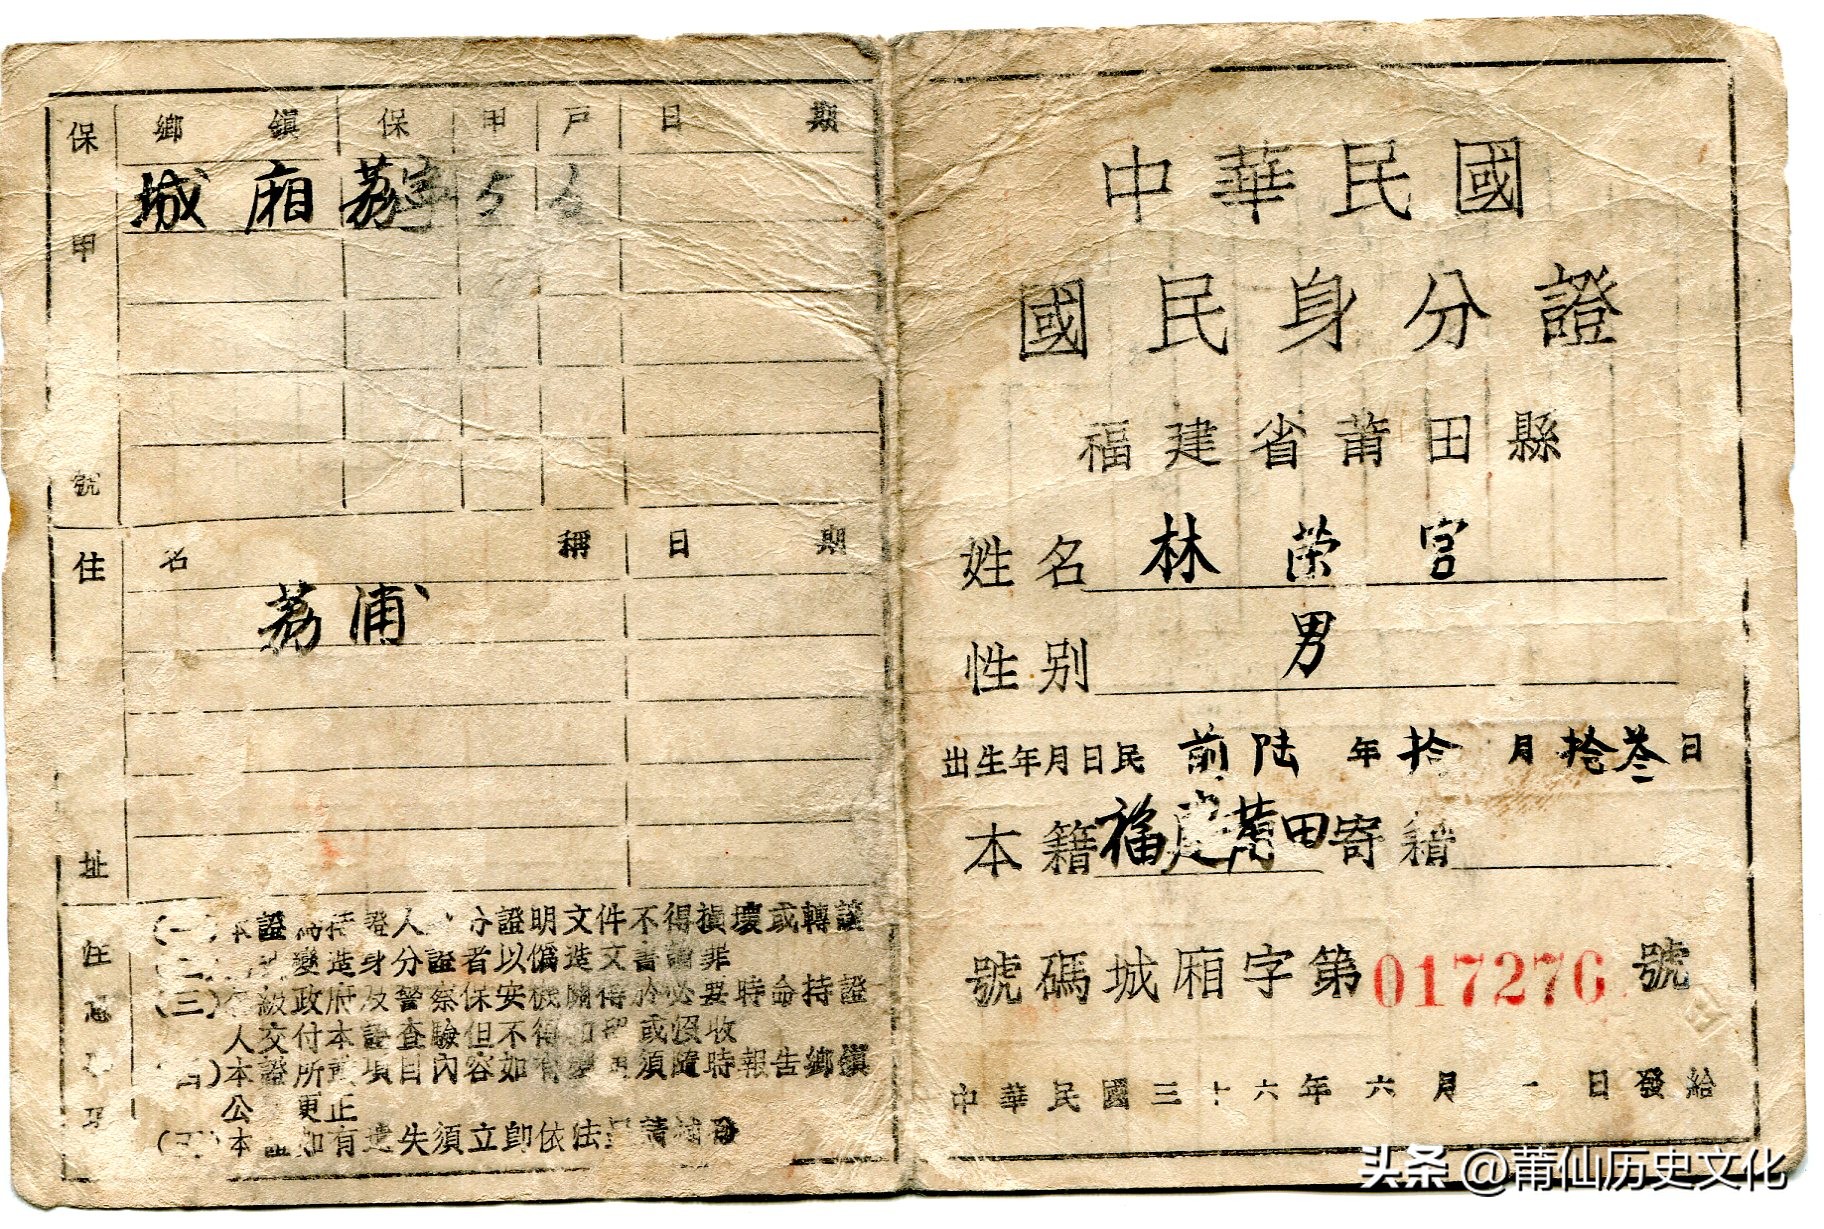 中華民國
國民身分證
福建省莆田縣
姓名 林榮宮
性別 男
出生年月日民前陸年拾月拾叁日
本籍福建莆田寄籍
號碼城廂字第017276號
中華民國三十六年六月一日發給
保甲號
鄉鎮 保 甲 戶 日期
城廂 荔字 5
住址
名稱 日期
荔浦
(一)本證為持證人身分證明文件不得損壞或轉讓
變造身分證者以偽造文書論罪
(三)各級政府及警察保安機關得於必要時命持證
人交付本證查驗但不得扣留或沒收
本證所載項目內容如有變更須隨時報告鄉鎮
公 更正
本證如有遺失須立即依法呈請補發
头条 @莆仙历史文化